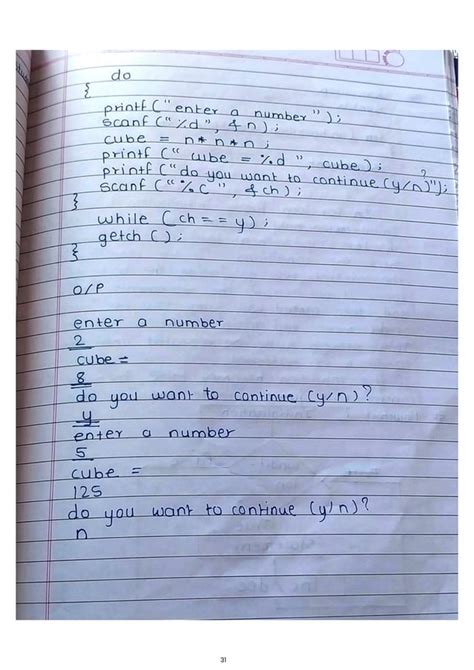 do
{
printf("enter a number");
scanf("%d", &n);
cube = n*n*n;
printf("cube = %d", cube);
printf("do you want to continue (y/n)?");
scanf("%c", &ch);
}
while (ch == y);
getch();
}
O/P
enter a number
2
cube =
8
do you want to continue (y/n)?
y
enter a number
5
cube =
125
do you want to continue (y/n)?
n
31